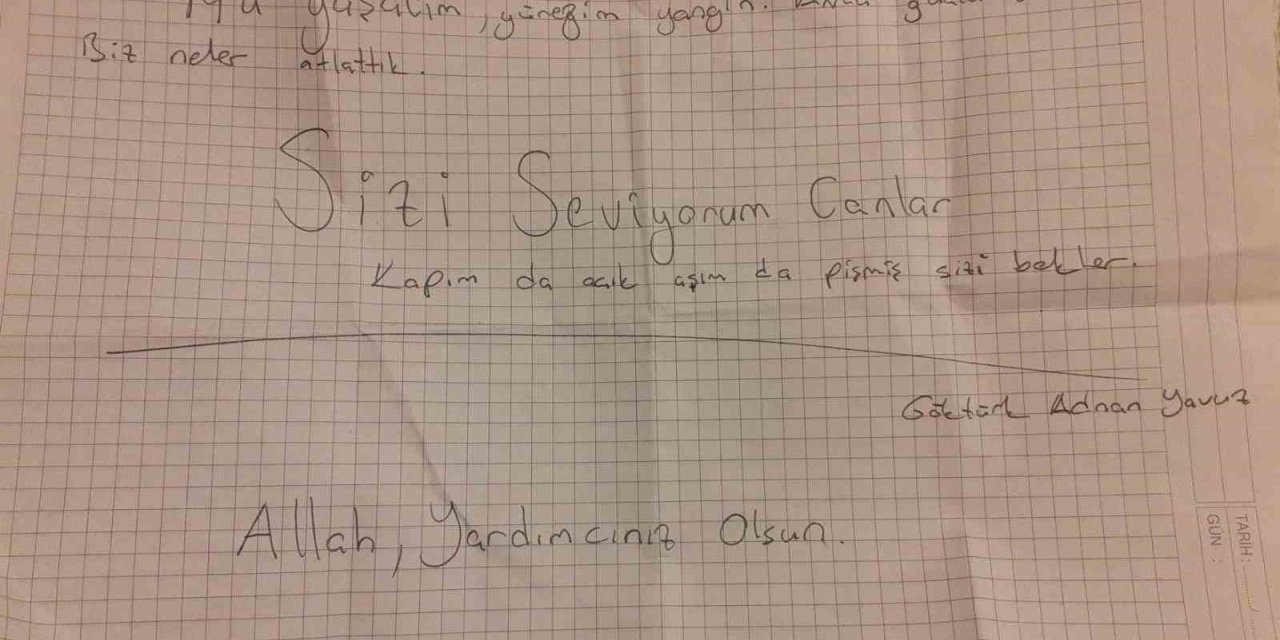 yaşalım, yüreğim yangın.
Biz neler atlattık.
Sizi Seviyorum Canlar
Kapım da acık aşım da pişmiş sizi bekler.
Göktürk Adnan Yavuz
Allah, Yardımcınız Olsun.
TARİH:
GÜN :